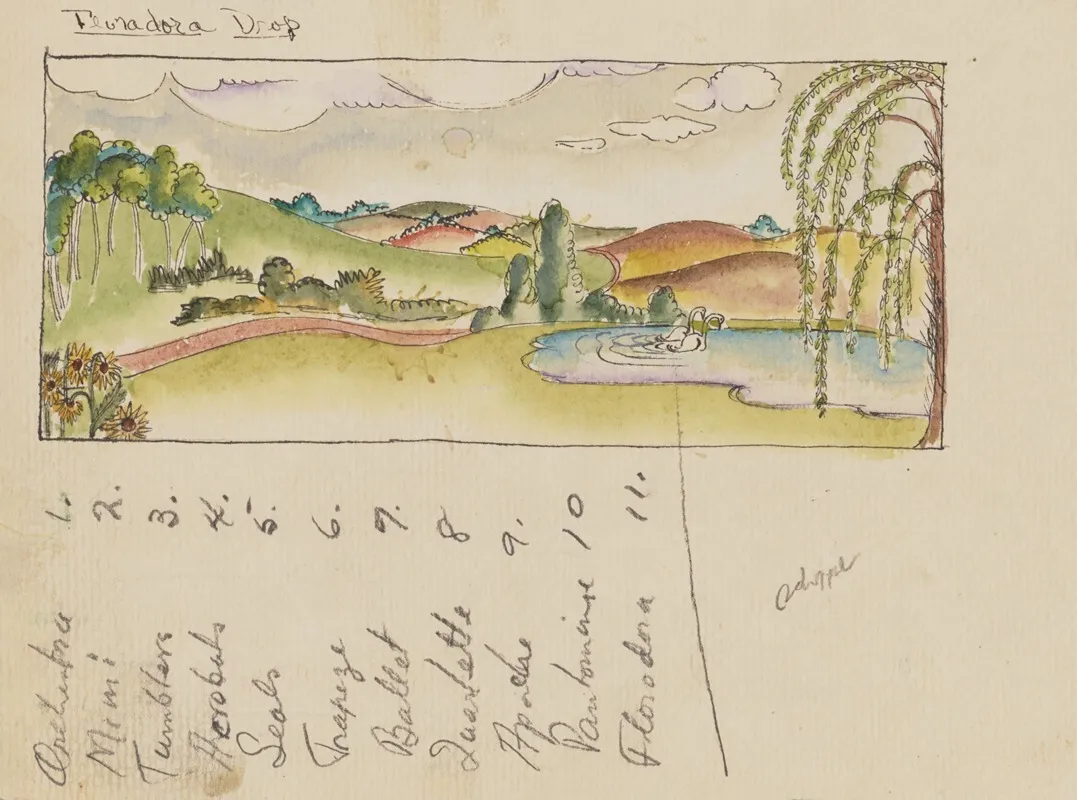 Floradora Drop
1. Orchestra
2. Mimi
3. Tumblers
4. Acrobats
5. Seals
6. Trapeze
7. Ballet
8 Quartette
9. Apache
10 Pantomime
11. Florodora